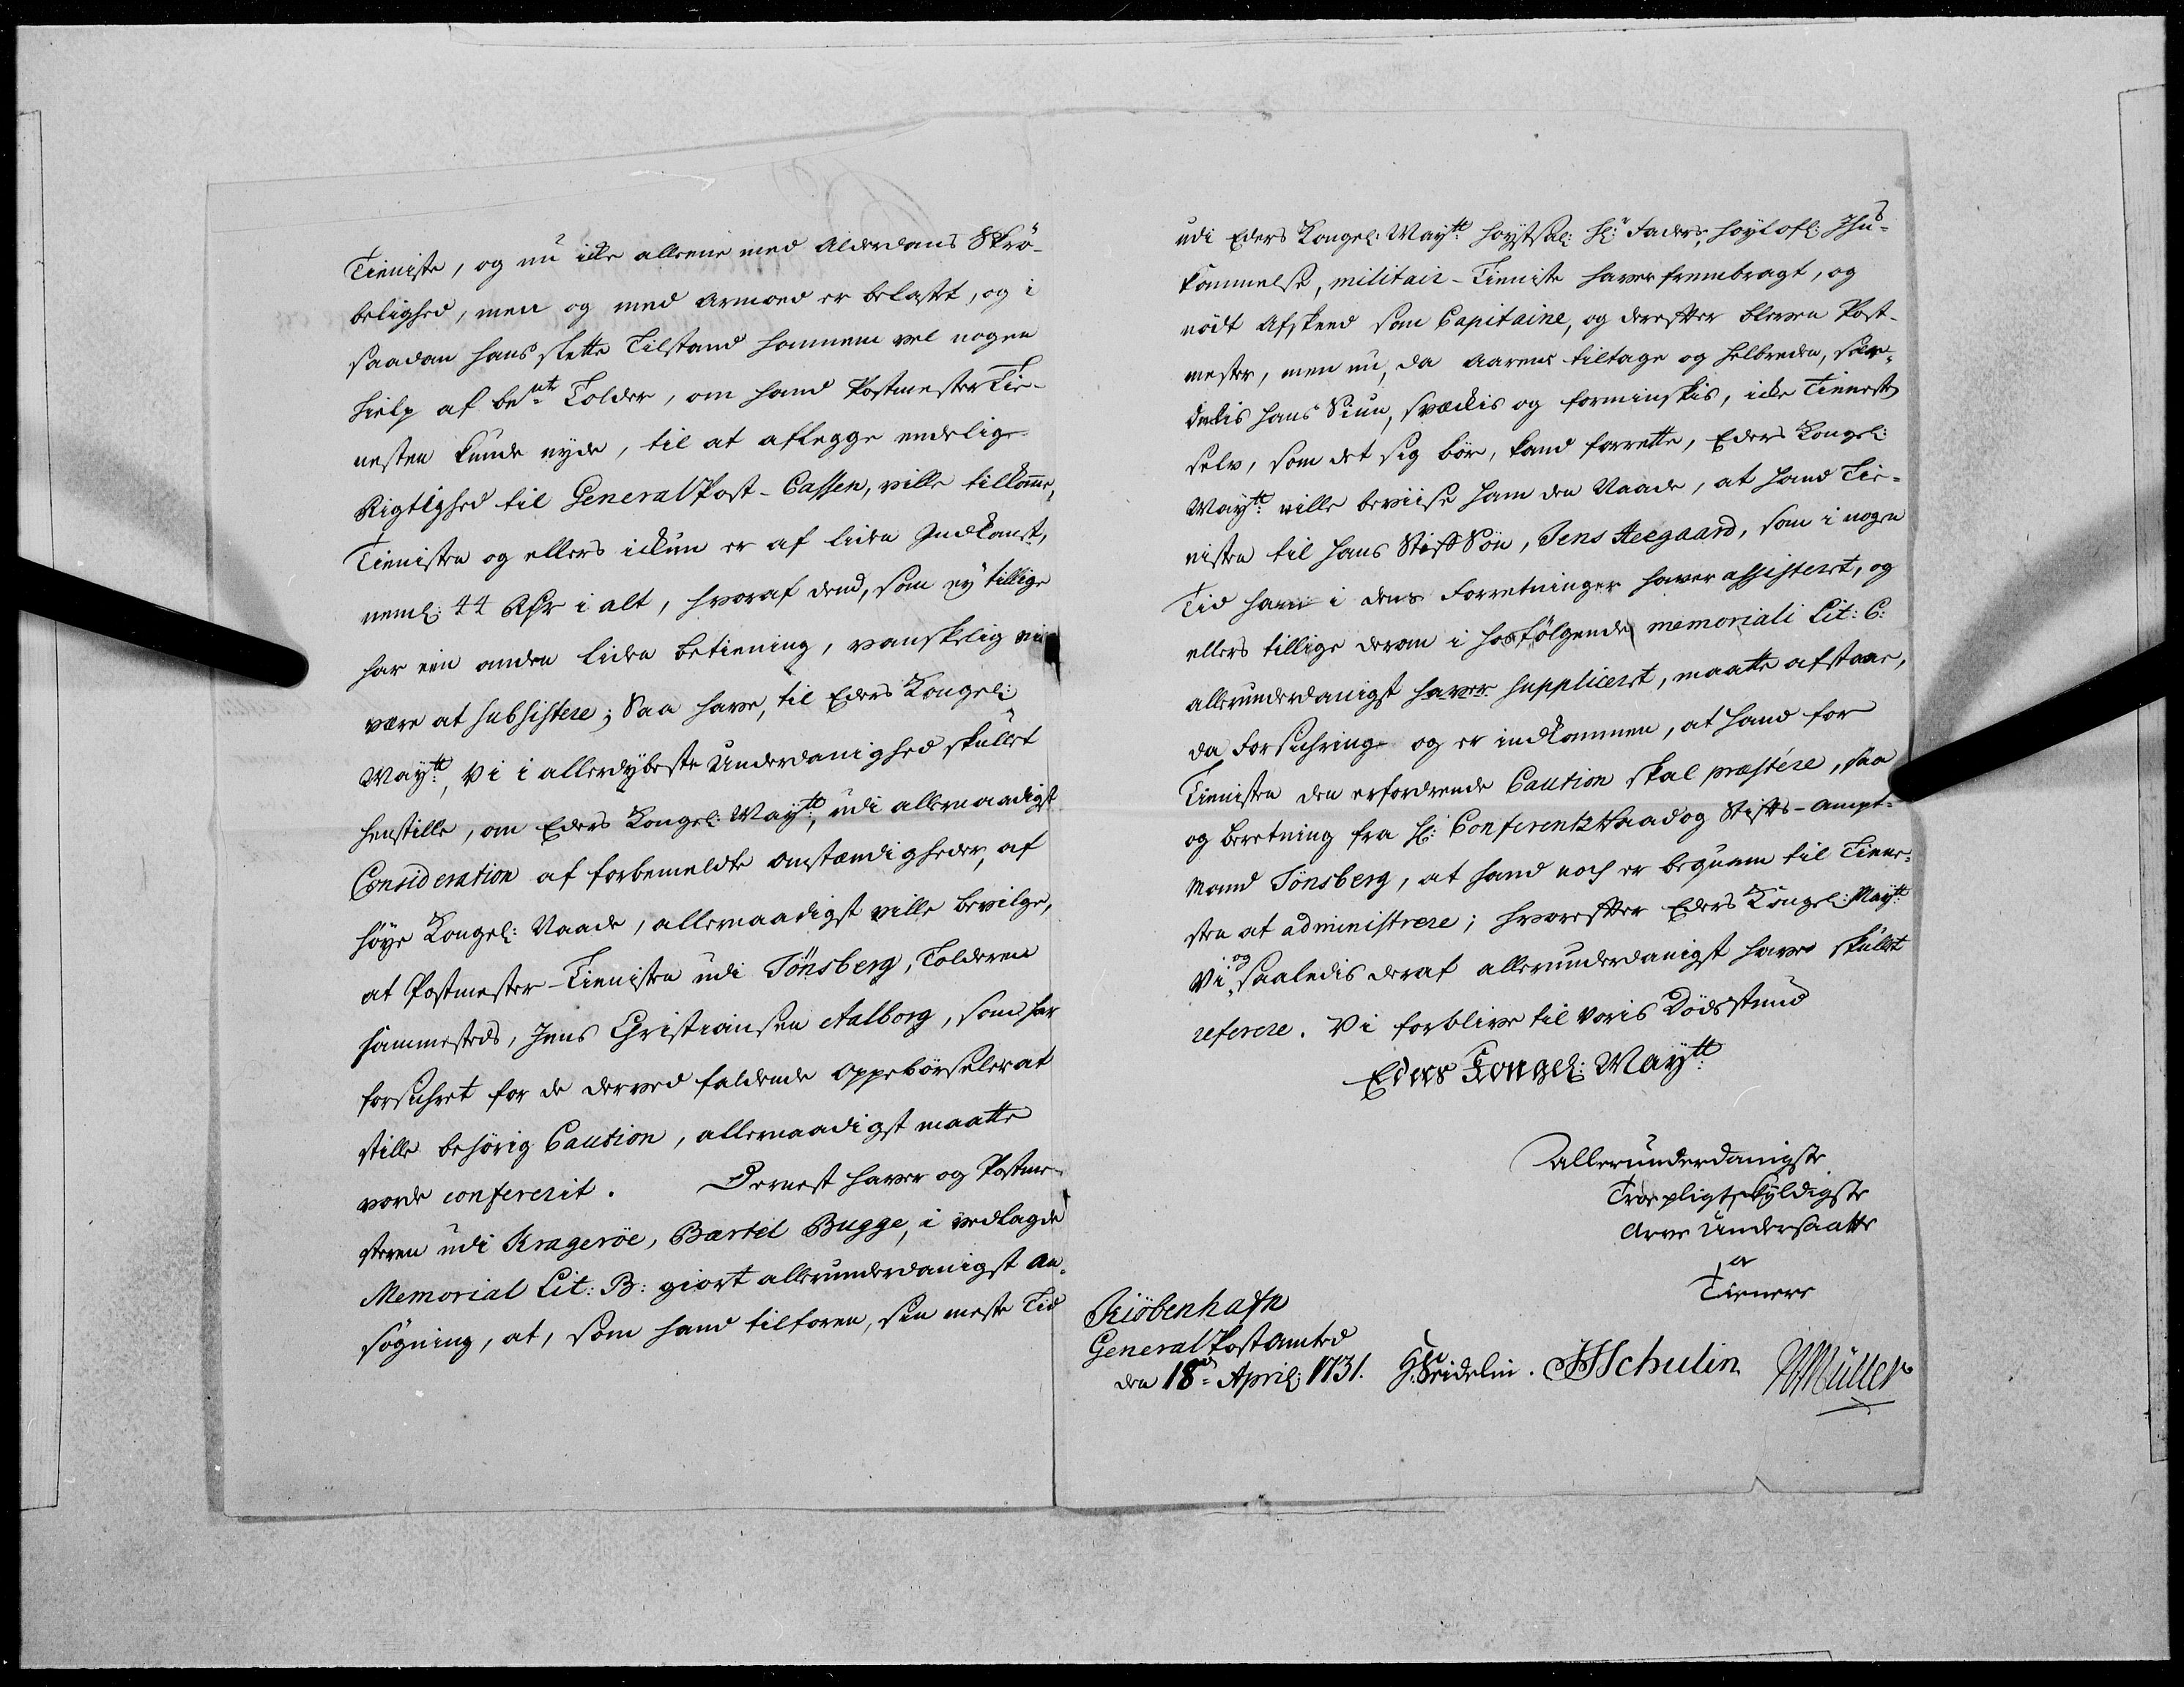 Tieniste, og nu icke alleene med Alderdoms Skrö-
belighed, men og med Armoed er belastet, og i
saadan hans slette Tilstand hannem vel nogen
hielp af be.nte Tolder, om hand Postmester Tie-
nesten kunde nyde, til at aflegge endelig
Rigtighed til General Post-Cassen, ville tilkomme,
Tienisten og ellers ickun er af liden Indkomst,
neml: 44 Rdr i alt, hvoraf dend, som ey tillige
har een anden liden betiening, vanskelig vil
være at subsistere; Saa have, til Eders Kongel:
Maytt:, Vi i allerdybeste Underdanighed skullet
henstille, om Eders Kongel: Maytt:, udi allernaadigst
Consideration af forbemeldte omstændigheder, af
höye Kongel: Naade, allernaadigst ville bevilge,
at Postmester-Tienisten udi Tönsberg, Tolderen
sammesteds, Jens Christiansen Aalborg, som har
forsichret for de derved faldende Oppebörseler at
stille behörig Caution, allernaadigst maatte
vorde confererit. Dernest haver og Postme-
steren udi Kragerøe, Bartel Bugge, i vedlagde
Memorial Lit: B: giort allerunderdanigst An-
søgning, at, som hand tilforen, sin meste Tid
udi Eders Kongel: Maytt: höystsal: Hr: Faders, höylofl: Ihu-
kommelse, militair-Tieniste haver frembragt, og
nödt Afskeed som Capitaine, og derefter bleven Post-
mester, men nu, da Aarene tiltage og helbreden, sær-
delis hans Siun, svæckis og forminskis, icke Tienesten
selv, som det sig bör, kand forrette, Eders Kongel:
Maytt: ville beviise ham den Naade, at hand Tie-
nisten til hans Stif Sön, Jens Heegaard, som i nogen
Tid ham i dens Forretninger haver assisteret, og
ellers tillige derom i hosfölgende memoriali Lit: C:
allerunderdanigst haver suppliceret, maatte afstaae,
da Forsichring og er indkommen, at hand for
Tienisten den erfordrende Caution skal præstére, saa
og beretning fra Hr: Conferentz Raad og Stifts-Ampt-
Mand Tönsberg, at hand nock er beqvem til Tiene-
sten at administrere; hvorefter Eders Kongel: Maytt:
Vi og saaledis deraf allerunderdanigst have skullet
referere. Vi forblive til voris Dödsstund
Eders Kongel: Maytt:
Allerunderdanigste
Troepligtskyldigste
Arve Undersaatte
og
Tienere
Kiöbenhafn
General Postamted
den 18de April: 1731. H: Seidelin. JSSchulin MMüller